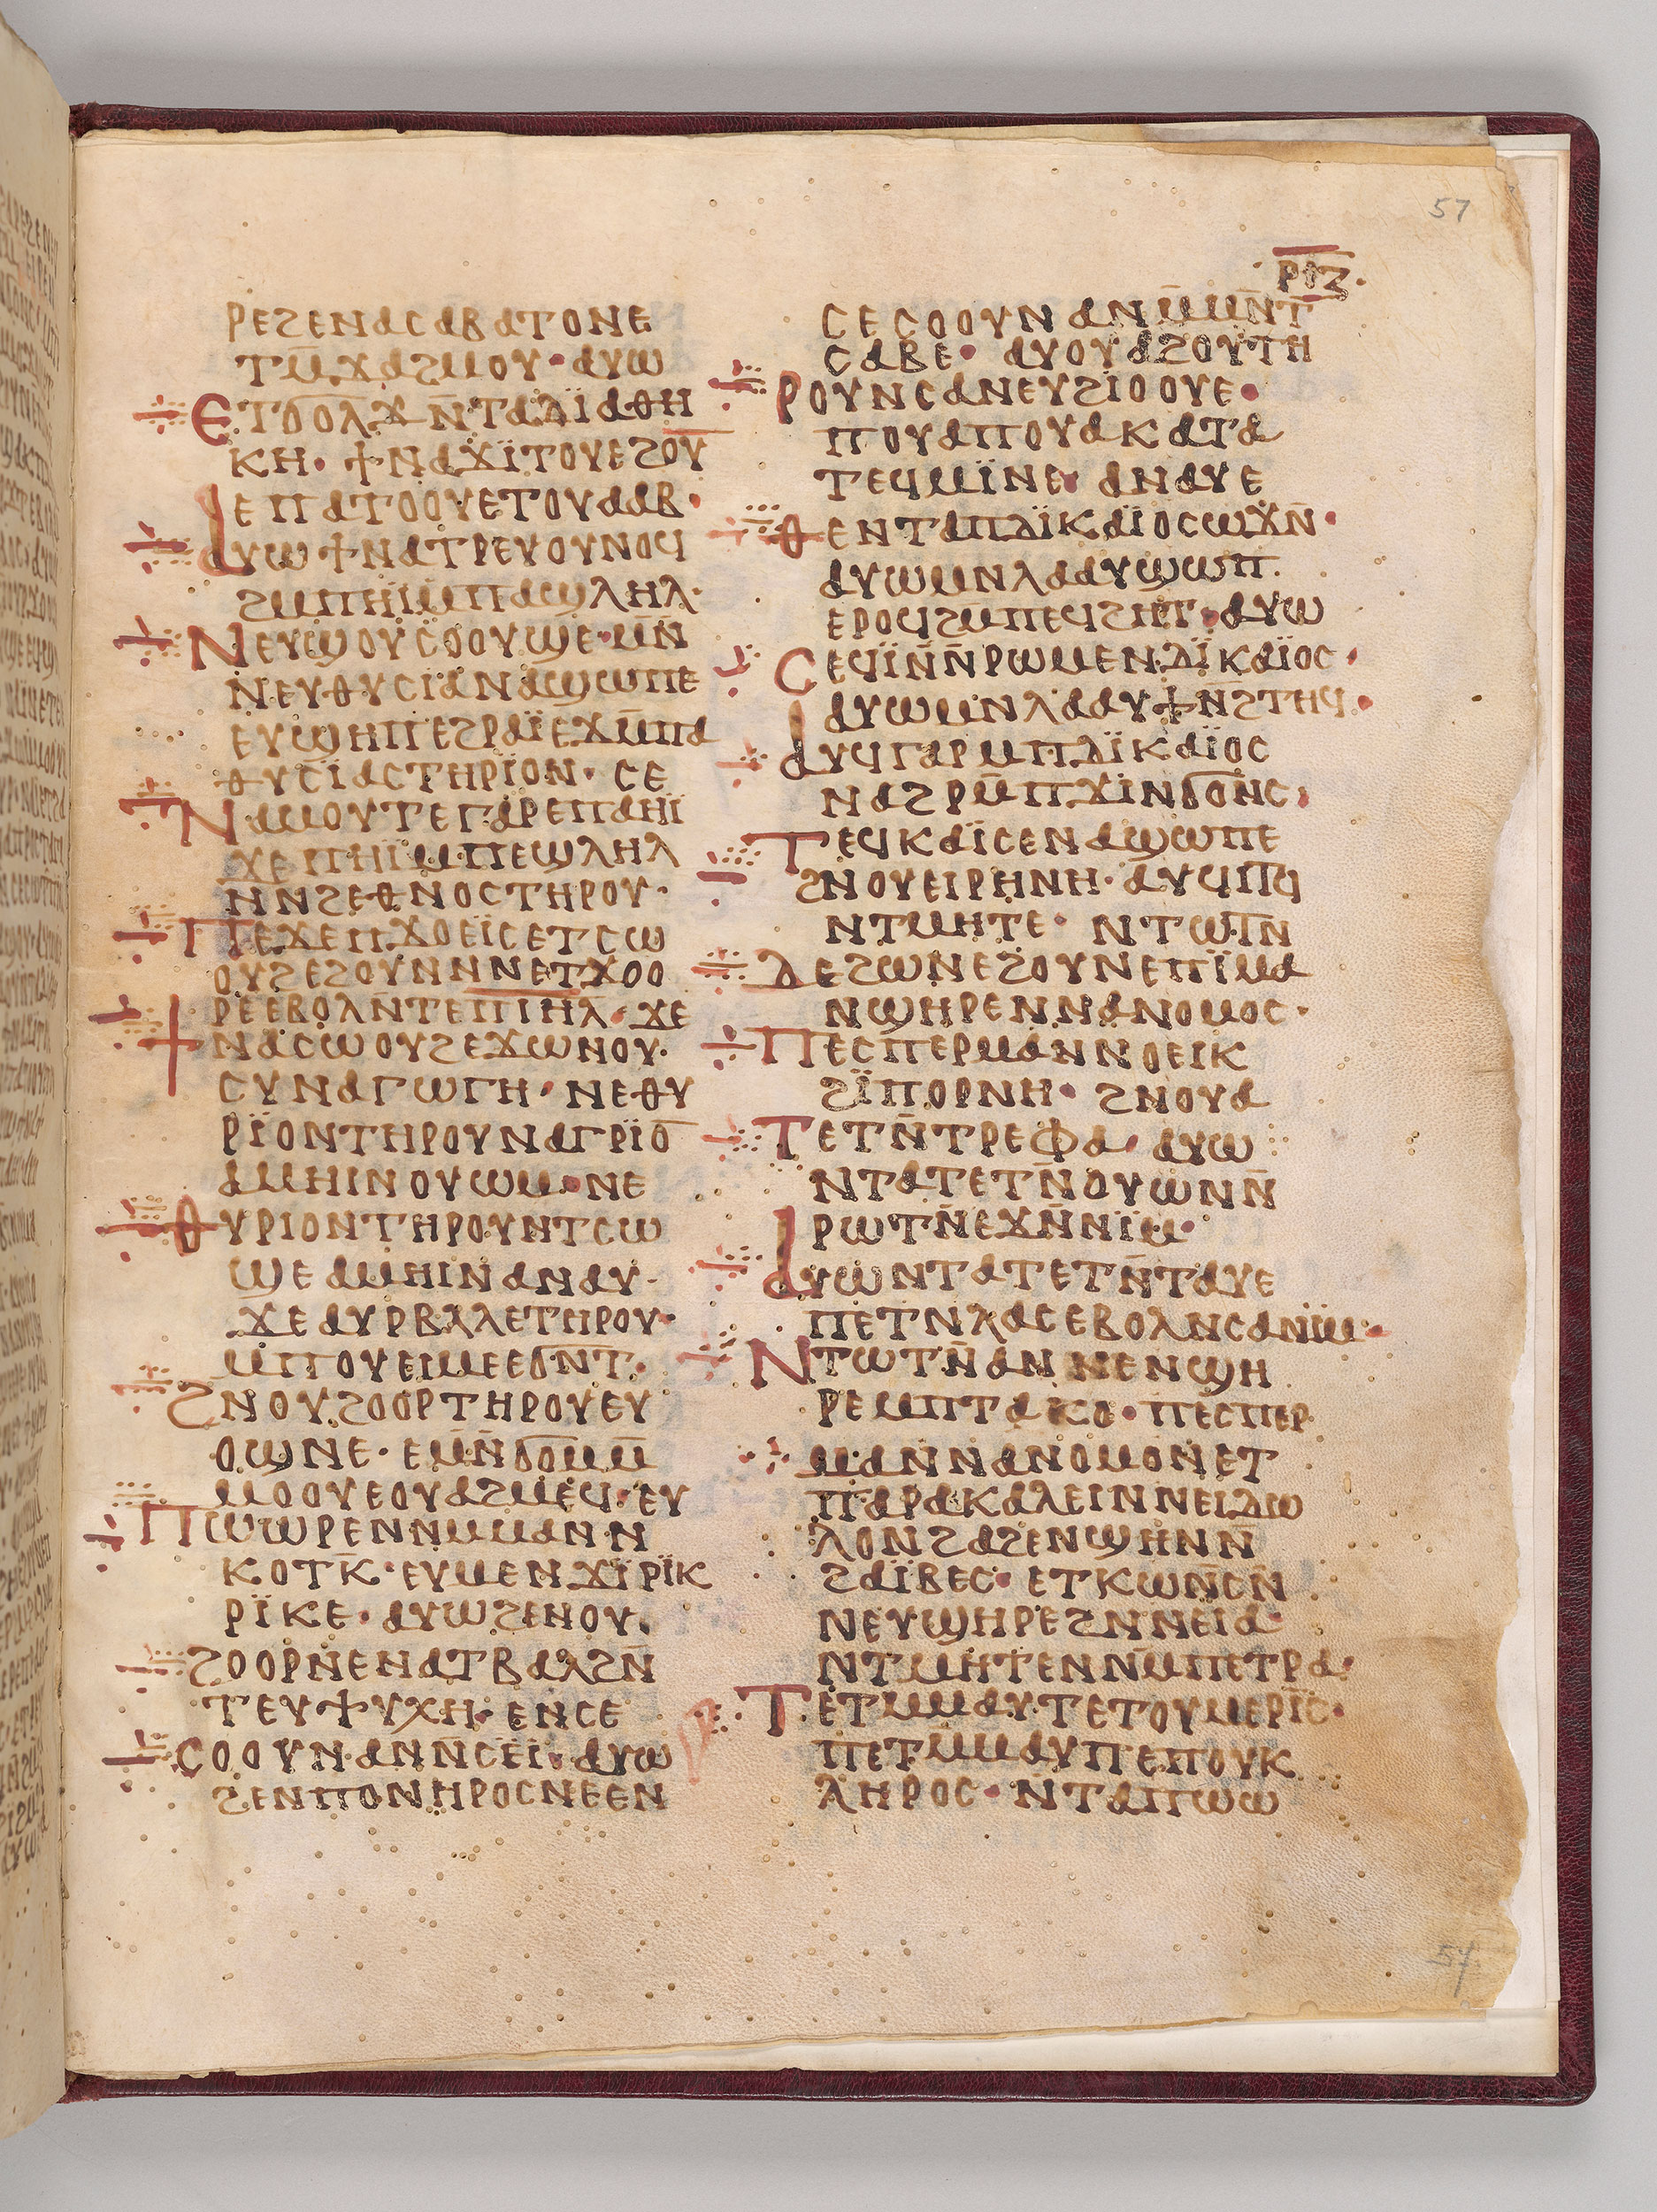 57
ⲣⲓⲍ
ⲣⲉϩⲉⲛⲁⲥⲁⲃⲁⲧⲟⲛⲉ
ⲧⲙ̅ϫⲁϩⲙⲟⲩ· ⲁⲩⲱ
ⲉⲧⲟⲟⲗϫⲛ̅ⲧⲁⲇⲓ̈ⲁⲑⲏ
ⲕⲏ· ϯⲛⲁϫⲓ̈ⲧⲟⲩⲉϩⲟⲩ̅
ⲉⲡⲁⲧⲟⲟⲩⲉⲧⲟⲩⲁⲁⲃ·
ⲁⲩⲱϯⲛⲁⲧⲣⲉⲩⲟⲩⲛⲟϥ
ϩⲙⲡⲏⲓ̈ⲙ̅ⲡⲁϣⲗⲏⲗ·
ⲛⲉⲩϣⲟⲩⲥⲟⲟⲩϣⲉ·ⲙⲛ̅
ⲛⲉⲩⲑⲩⲥⲓⲁⲛⲁϣⲱⲡⲉ
ⲉⲩϣⲏⲡⲉϩⲣⲁⲓ̈ⲉϫⲙ̅ⲡⲁ
ⲑⲩⲥⲓ̈ⲁⲥⲧⲏⲣⲓⲟⲛ· ⲥⲉ
ⲛⲁⲙⲟⲩⲧⲉⲅⲁⲣⲉⲡⲁⲏⲓ̈
ϫⲉⲡⲏⲓ̈ⲙⲡⲉϣⲗⲏⲗ
ⲛⲛϩⲉⲑⲛⲟⲥⲧⲏⲣⲟⲩ·
ⲡⲉϫⲉⲡϫⲟⲉⲓ̈ⲥⲉⲧⲥⲱ
ⲟⲩϩⲉϩⲟⲩⲛⲛⲛⲉⲧϫⲟⲟ
ⲣⲉⲉⲃⲟⲗⲛⲧⲉⲡⲓ̅ⲏ̅ⲗ̅· ϫⲉ
ϯⲛⲁⲥⲱⲟⲩϩⲉϫⲱⲛⲟⲩ·
ⲥⲩⲛⲁⲅⲱⲅⲏ· ⲛⲉⲑⲩ
ⲣⲓ̈ⲟⲛⲧⲏⲣⲟⲩⲛⲁⲅⲣⲓ̈ⲟ̅
ⲁⲙⲏⲓⲛⲟⲩⲱⲙ·ⲛⲉ
ⲑⲩⲣⲓⲟⲛⲧⲏⲣⲟⲩⲛⲧⲥⲱ
ϣⲉⲁⲙⲏⲓⲛⲁⲛⲁⲩ·
ϫⲉⲁⲩⲣⲃⲗ̅ⲗⲉⲧⲏⲣⲟⲩ·
ⲙⲡⲟⲩⲉⲓⲙⲉⲉϭⲛ̅ⲧ·
ϩⲛⲟⲩϩⲟⲟⲣⲧⲏⲣⲟⲩⲉⲩ
ⲟϣⲛⲉ· ⲉⲙⲛ̅ϭⲟⲙⲙ̅
ⲙⲟⲟⲩⲉⲟⲩⲁϩⲙⲉϥ·ⲉⲩ
ⲡⲱⲱⲣⲉⲛⲛⲙⲙⲁⲛⲛ
ⲕⲟⲧⲕ̅·ⲉⲩⲙⲉⲛϫⲓ̈ⲣⲓ̈ⲕ
ⲣⲓ̈ⲕⲉ· ⲁⲩⲱϩⲉⲛⲟⲩ
ϩⲟⲟⲣⲛⲉⲛⲁⲧⲃⲁⲗϩⲛ̅
ⲧⲉⲩⲯⲩⲭⲏ· ⲉⲛⲥⲉ
ⲥⲟⲟⲩⲛ·ⲁⲛⲛⲥⲉⲓ̈· ⲁⲩⲱ
ϩⲉⲛⲡⲟⲛⲏⲣⲟⲥⲛⲉⲉⲛ
ⲥⲉⲥⲟⲟⲩⲛⲁⲛⲙ̅ⲙⲛ̅ⲧ̅
ⲥⲁⲃⲉ· ⲁⲩⲟⲩⲁϩⲟⲩⲧⲏ
ⲣⲟⲩⲛⲥⲁⲛⲉⲩϩⲓⲟⲟⲩⲉ·
ⲡⲟⲩⲁⲡⲟⲩⲁⲕⲁⲧⲁ
ⲧⲉϥⲙⲓ̈ⲛⲉ· ⲁⲛⲁⲩⲉ
ⲑⲉⲛⲧⲁⲡⲇⲓ̈ⲕⲁⲓ̈ⲟⲥⲱϫⲛ̅·
ⲁⲩⲱⲙⲛⲗⲁⲁⲩϣⲱⲡ
ⲉⲣⲟϥϩⲙ̅ⲡⲉϥϩⲏⲧ·ⲁⲩⲱ
ⲥⲉϥⲓ̈ⲛ̅ⲛ̅ⲣⲱⲙⲉⲛ·ⲇⲓ̈ⲕⲁⲓ̈ⲟⲥ·
ⲁⲩⲱⲙⲛⲗⲁⲁⲩϯⲛϩⲧⲏϥ·
ⲁⲩϥⲓⲅⲁⲣⲙⲡⲇⲓ̈ⲕⲁⲓ̈ⲟⲥ
ⲛⲁϩⲣⲙ̅ⲡϫⲓⲛϭⲟⲛⲥ·
ⲧⲉϥⲕⲁⲓ̈ⲥⲉⲛⲁϣⲱⲡⲉ
ϩⲛⲟⲩⲉⲓⲣⲏⲛⲏ· ⲁⲩϥⲓⲧϥ
ⲛⲧⲙⲏⲧⲉ· ⲛⲧⲱⲧⲛ
ⲇⲉϩⲱⲛⲉϩⲟⲩⲛⲉⲡⲓ̈ⲙⲁ
ⲛϣⲏⲣⲉⲛⲛⲁⲛⲟⲙⲟⲥ·
ⲡⲉⲥⲡⲉⲣⲙⲁⲛⲛⲟⲉⲓⲕ
ϩⲓ̈ⲡⲟⲣⲛⲏ· ϩⲛⲟⲩⲁ
ⲧⲉⲧⲛ̅ⲧⲣⲉⲫⲁ· ⲁⲩⲱ
ⲛⲧⲁⲧⲉⲧⲛ̅ⲟⲩⲱⲛⲛ̅
ⲣⲱⲧⲛ̅ⲉϫⲛ̅ⲛⲓ̈ⲙ·
ⲁⲩⲱⲛⲧⲁⲧⲉⲧⲛ̅ⲧⲁⲩⲉ
ⲡⲉⲧⲛⲗⲁⲥⲉⲃⲟⲗⲛⲥⲁⲛⲓ̈ⲙ·
ⲛⲧⲱⲧⲛ̅ⲁⲛⲛⲉⲛϣⲏ
ⲣⲉⲙⲡⲧⲁⲕⲟ·ⲡⲉⲥⲡⲉⲣ
ⲙⲁⲛⲛⲁⲛⲟⲙⲟⲛⲉⲧ
ⲡⲁⲣⲁⲕⲁⲗⲉⲓⲛⲛⲉⲓⲇⲱ
ⲗⲟⲛϩⲁϩⲉⲛϣⲏⲛⲛ̅
ϩⲁⲓ̈ⲃⲉⲥ· ⲉⲧⲕⲱⲛⲥⲛ̅
ⲛⲉⲩϣⲏⲣⲉϩⲛⲛⲉⲓⲁ
ⲛⲧⲙⲏⲧⲉⲛⲛ̅ⲙⲡⲉⲧⲣⲁ·
ⲧⲉⲧⲙⲙⲁⲩⲧⲉⲧⲟⲩⲙⲉⲣⲓ̈ⲥ·
ⲡⲉⲧⲙ̅ⲙⲁⲩⲡⲉⲡⲟⲩⲕ
ⲗⲏⲣⲟⲥ· ⲛⲧⲁⲡⲱⲱ